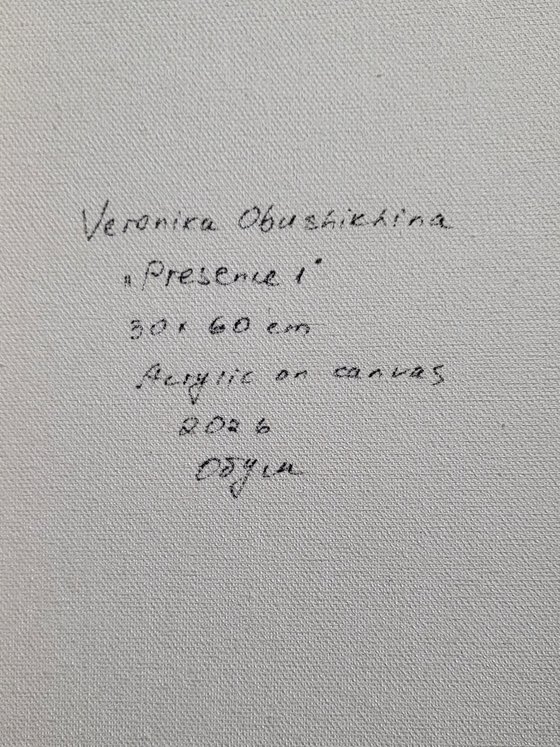 Veronika Obushikhina
„Presence 1"
30 x 60 cm
Acrylic on canvas
2026